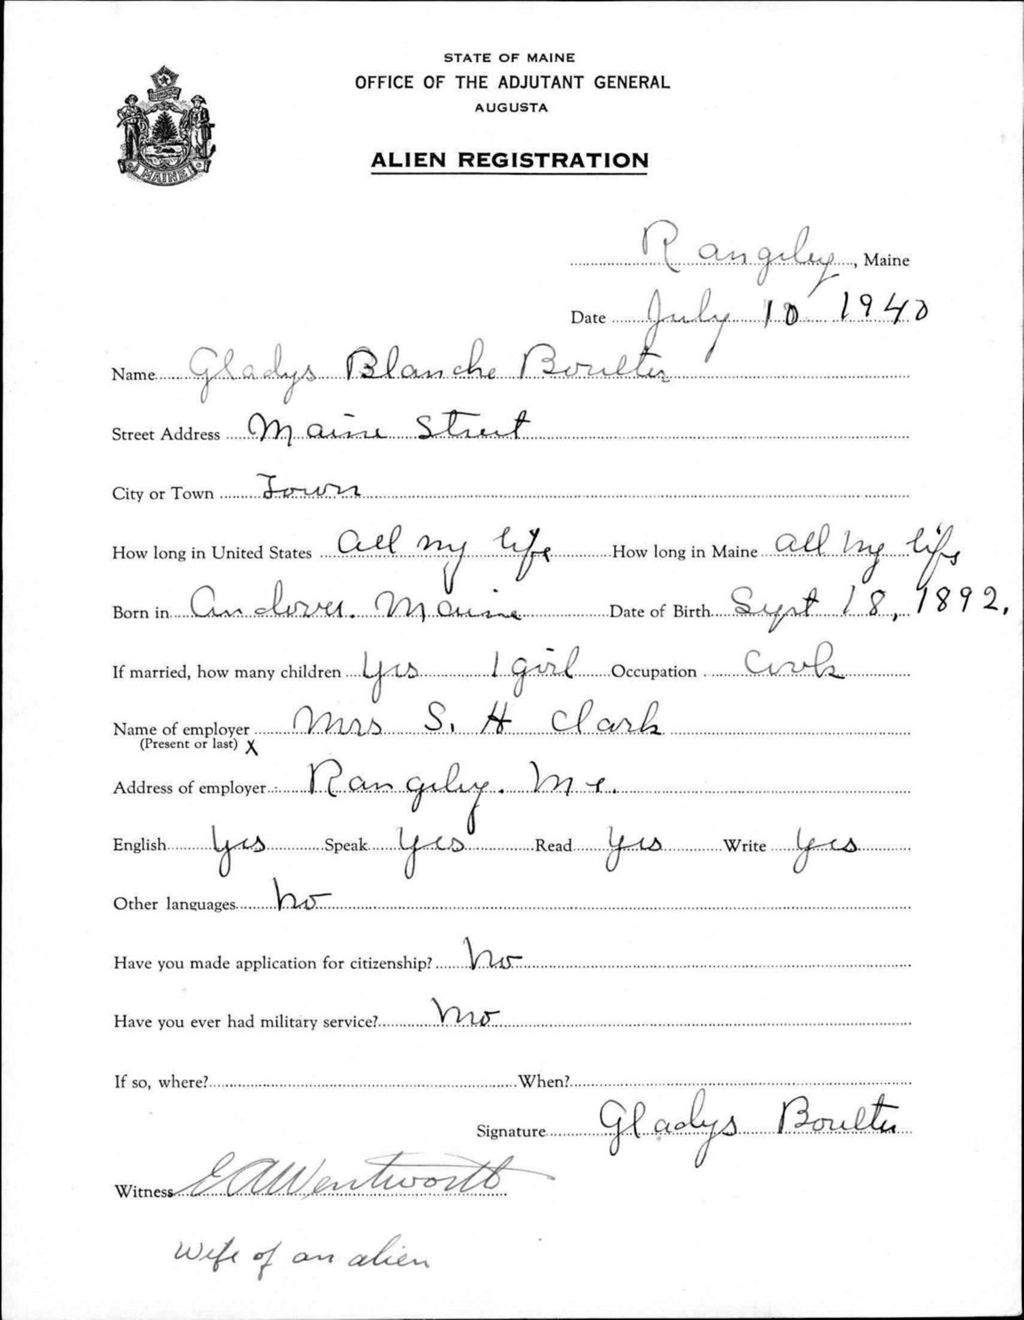 STATE OF MAINE
OFFICE OF THE ADJUTANT GENERAL
AUGUSTA
ALIEN REGISTRATION
MAINE
Rangeley, Maine
Date July 10 1940
Name Gladys Blanche Boulter
Street Address Maine Street
City or Town Town
How long in United States all my life How long in Maine all my life
Born in Andover. Maine Date of Birth Sept 18, 1892.
If married, how many children Yes 1 girl Occupation Cook
Name of employer Mrs S. H Clark
(Present or last) X
Address of employer Rangeley. Me.
English Yes Speak Yes Read Yes Write Yes
Other languages No
Have you made application for citizenship? No
Have you ever had military service? No
If so, where? When?
Signature Gladys Boulter
Witness E A Wentworth
Wife of an alien